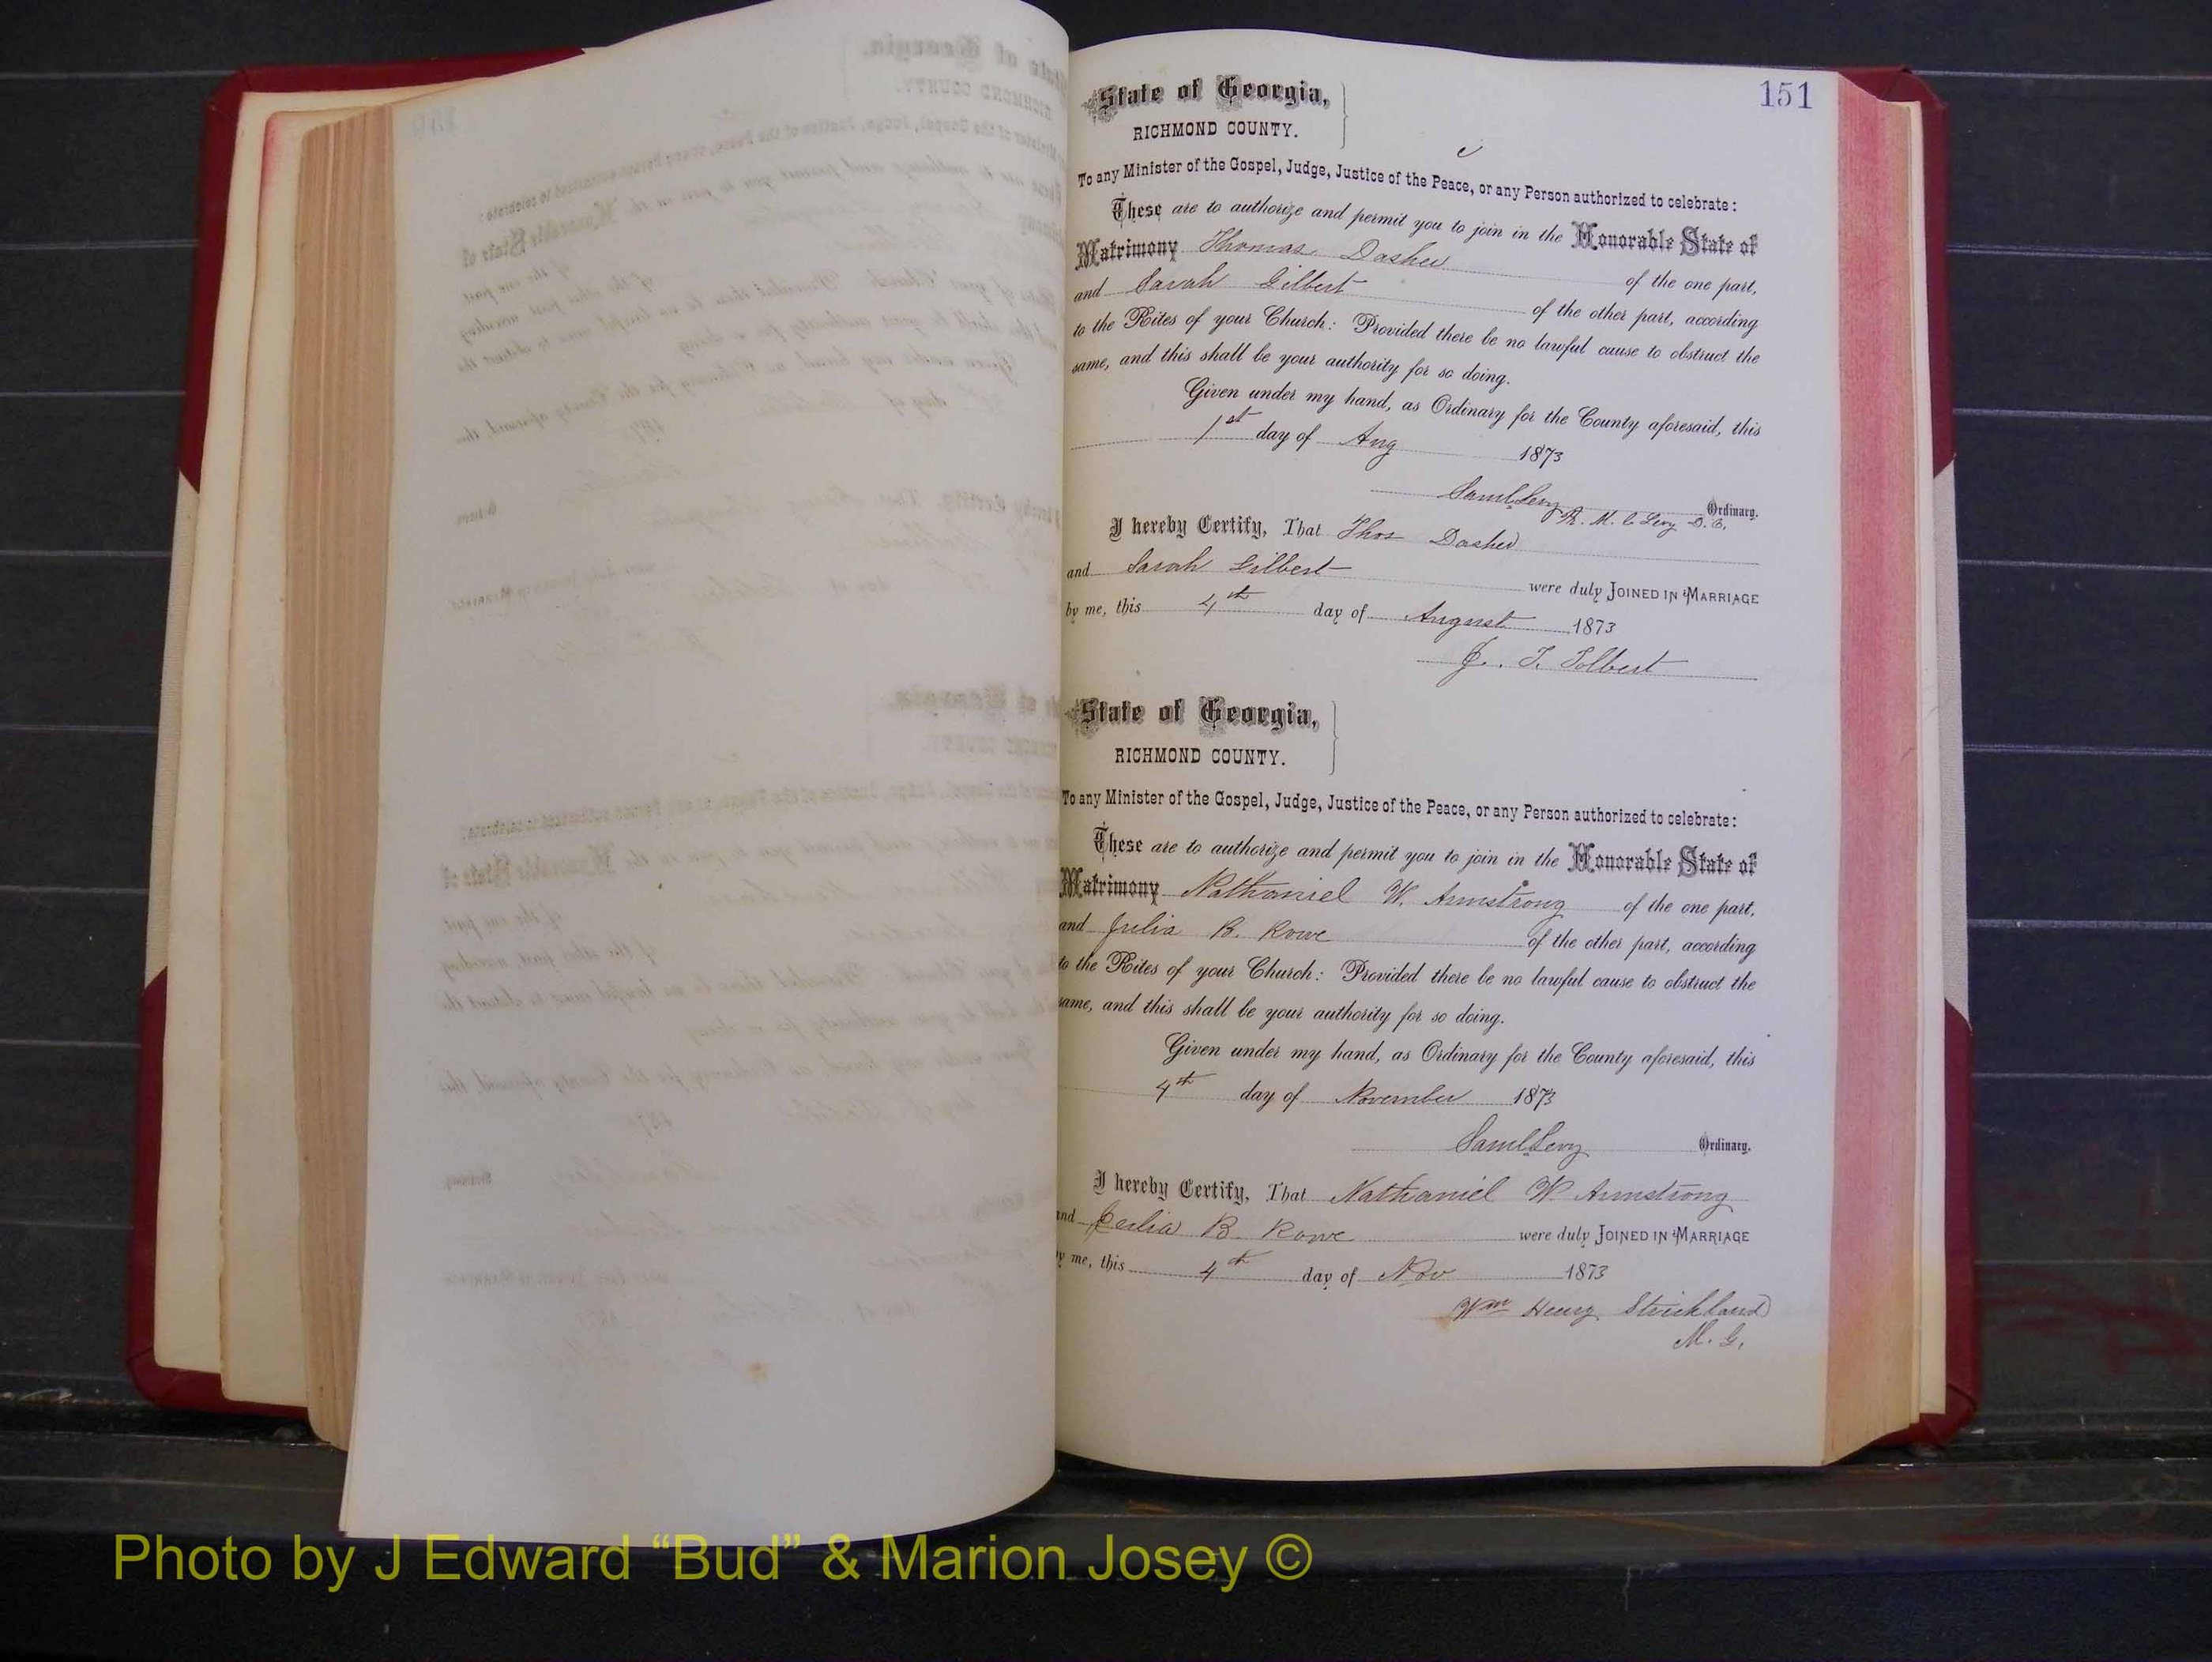 151
State of Georgia,
RICHMOND COUNTY.
To any Minister of the Gospel, Judge, Justice of the Peace, or any Person authorized to celebrate:
These are to authorize and permit you to join in the Honorable State of
Matrimony Thomas Dasher of the one part,
and Sarah Gilbert of the other part, according
to the Rites of your Church: Provided there be no lawful cause to obstruct the
same, and this shall be your authority for so doing.
Given under my hand, as Ordinary for the County aforesaid, this
1st day of Aug 1873
Saml Levy Ordinary.
M. C. Levy D. C.
I hereby Certify, That Thos Dasher
and Sarah Gilbert were duly JOINED IN MARRIAGE
by me, this 4th day of August 1873
J. T. Tolbert
State of Georgia,
RICHMOND COUNTY.
To any Minister of the Gospel, Judge, Justice of the Peace, or any Person authorized to celebrate:
These are to authorize and permit you to join in the Honorable State of
Matrimony Nathaniel W. Armstrong of the one part,
and Julia B. Rowe of the other part, according
to the Rites of your Church: Provided there be no lawful cause to obstruct the
same, and this shall be your authority for so doing.
Given under my hand, as Ordinary for the County aforesaid, this
4th day of November 1873
Saml Levy Ordinary.
I hereby Certify, That Nathaniel W Armstrong
and Julia B. Rowe were duly JOINED IN MARRIAGE
by me, this 4th day of Nov 1873
Wm Henry Strickland
M. G.
Photo by J Edward “Bud” & Marion Josey ©